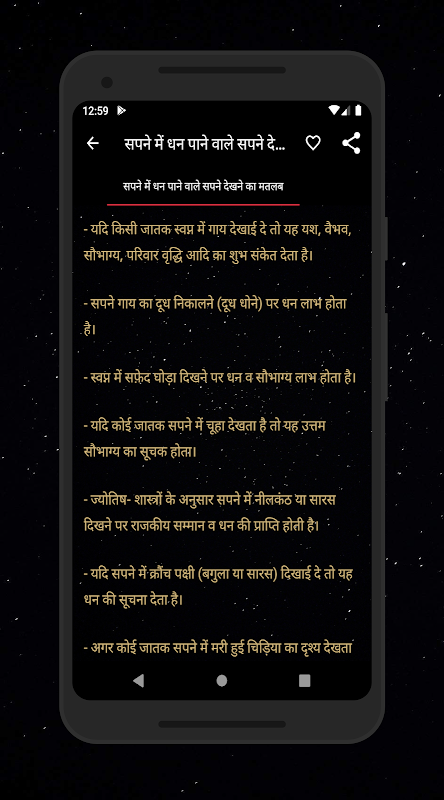 12:59
सपने में धन पाने वाले सपने दे...
सपने में धन पाने वाले सपने देखने का मतलब
- यदि किसी जातक स्वप्न में गाय देखाई दे तो यह यश, वैभव,
सौभाग्य, परिवार वृद्धि आदि का शुभ संकेत देता है।
- सपने गाय का दूध निकालने (दूध धोने) पर धन लाभ होता
है।
- स्वप्न में सफ़ेद घोड़ा दिखने पर धन व सौभाग्य लाभ होता है।
- यदि कोई जातक सपने में चूहा देखता है तो यह उत्तम
सौभाग्य का सूचक होता।
- ज्योतिष- शास्त्रों के अनुसार सपने में नीलकंठ या सारस
दिखने पर राजकीय सम्मान व धन की प्राप्ति होती है।
- यदि सपने में क्रौंच पक्षी (बगुला या सारस) दिखाई दे तो यह
धन की सूचना देता है।
- अगर कोई जातक सपने में मरी हुई चिड़िया का दृश्य देखता